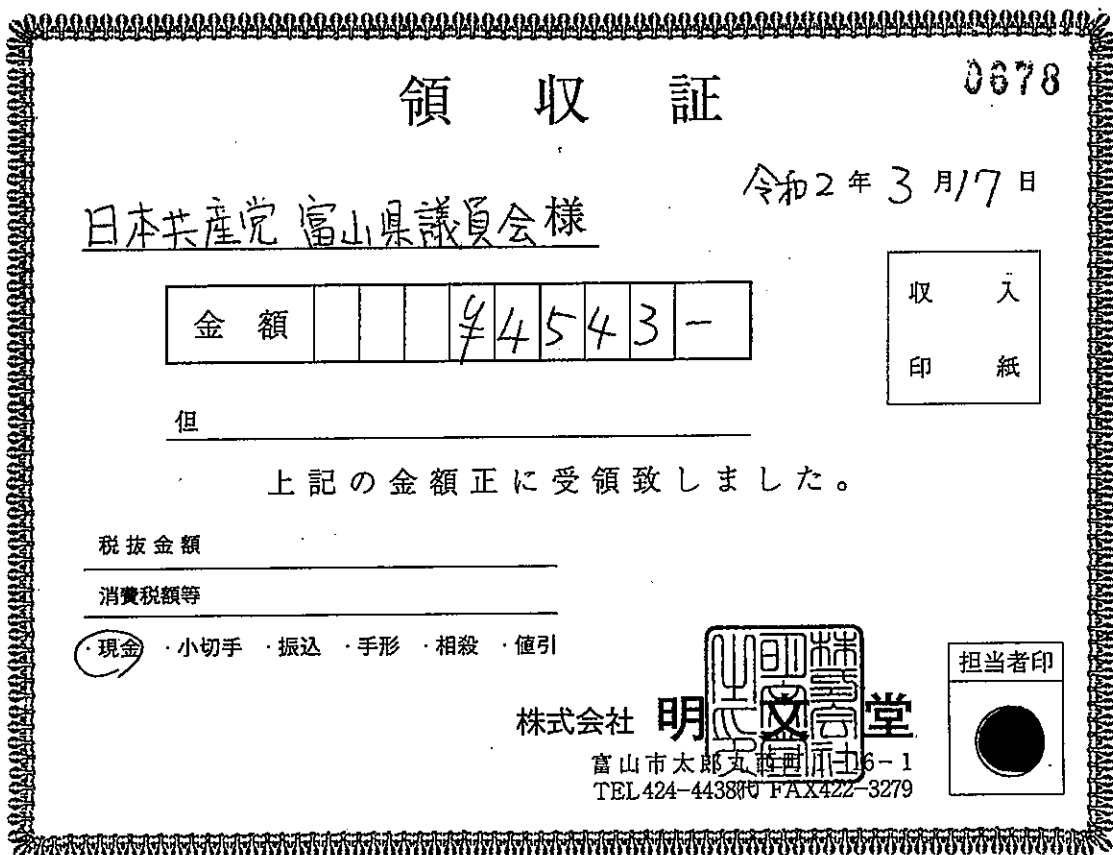 0678
領収証
令和2年3月17日
日本共産党 富山県議員会様
収入
印紙
金額 ¥4543-
但
上記の金額正に受領致しました。
税抜金額
消費税額等
・現金 ・小切手 ・振込 ・手形 ・相殺 ・値引
担当者印
株式会社 明文堂
富山市太郎丸西町1-16-1
TEL424-4438㈹ FAX422-3279